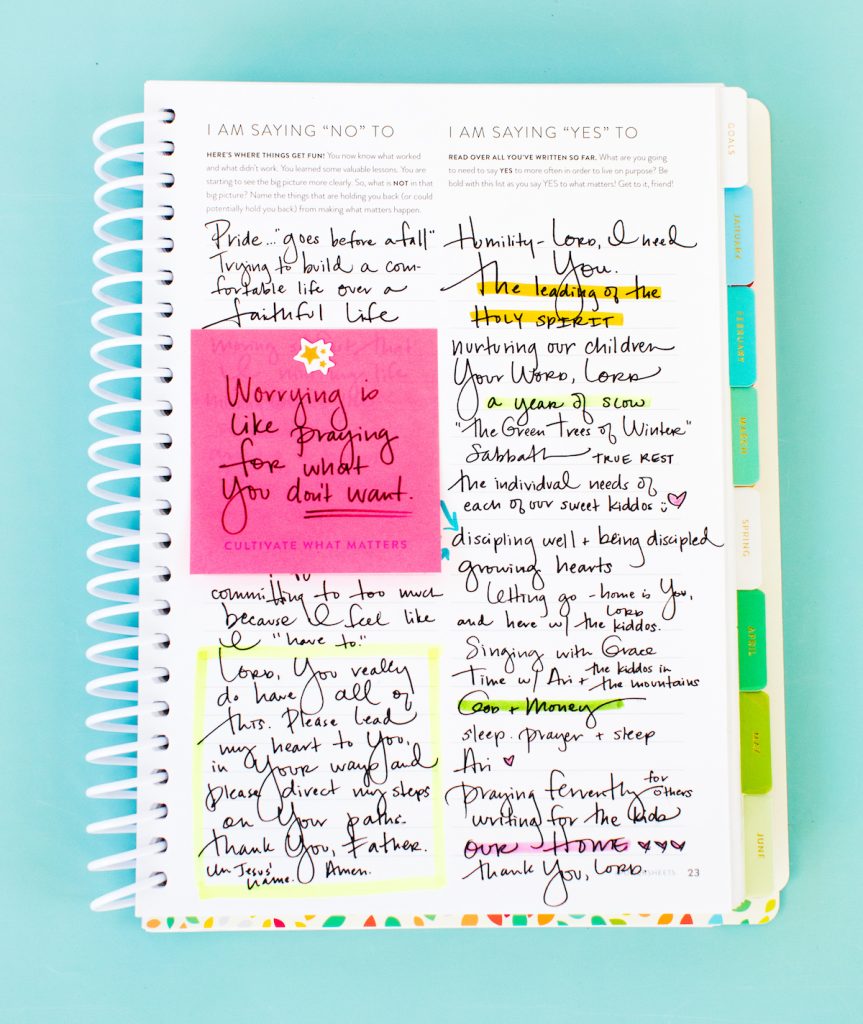 I AM SAYING "NO" TO
HERE'S WHERE THINGS GET FUN! You now know what worked
and what didn't work. You learned some valuable lessons. You are
starting to see the big picture more clearly. So, what is NOT in that
big picture? Name the things that are holding you back (or could
potentially hold you back) from making what matters happen.
Pride... "goes before a fall"
Trying to build a com-
fortable life over a
faithful life
Worrying is
like praying
for what
you don't want.
CULTIVATE WHAT MATTERS
committing to too much
because I feel like
I "have to."
LORD, You really
do have all of
this. Please lead
my heart to You,
in Your ways and
please direct my steps
on Your paths.
Thank You, Father.
In Jesus'
name. Amen.
I AM SAYING "YES" TO
READ OVER ALL YOU'VE WRITTEN SO FAR. What are you going
to need to say YES to more often in order to live on purpose? Be
bold with this list as you say YES to what matters! Get to it, friend!
Humility - LORD, I need
You.
The leading of the
HOLY SPIRIT
nurturing our children
Your Word, LORD
a year of slow
"The Green Trees of Winter"
Sabbath TRUE REST
the individual needs of
each of our sweet kiddos
discipling well + being discipled
growing hearts
letting go - home is You, LORD
and here w/ the kiddos.
Singing with Grace
Time w/ Ari + the kiddos in
the mountains
God + Money
sleep. prayer + sleep
Ari
praying fervently for others
writing for the kids
OUR HOME
thank You, LORD.
SHEETS 23
GOALS
JANUARY
FEBRUARY
MARCH
SPRING
APRIL
MAY
JUNE